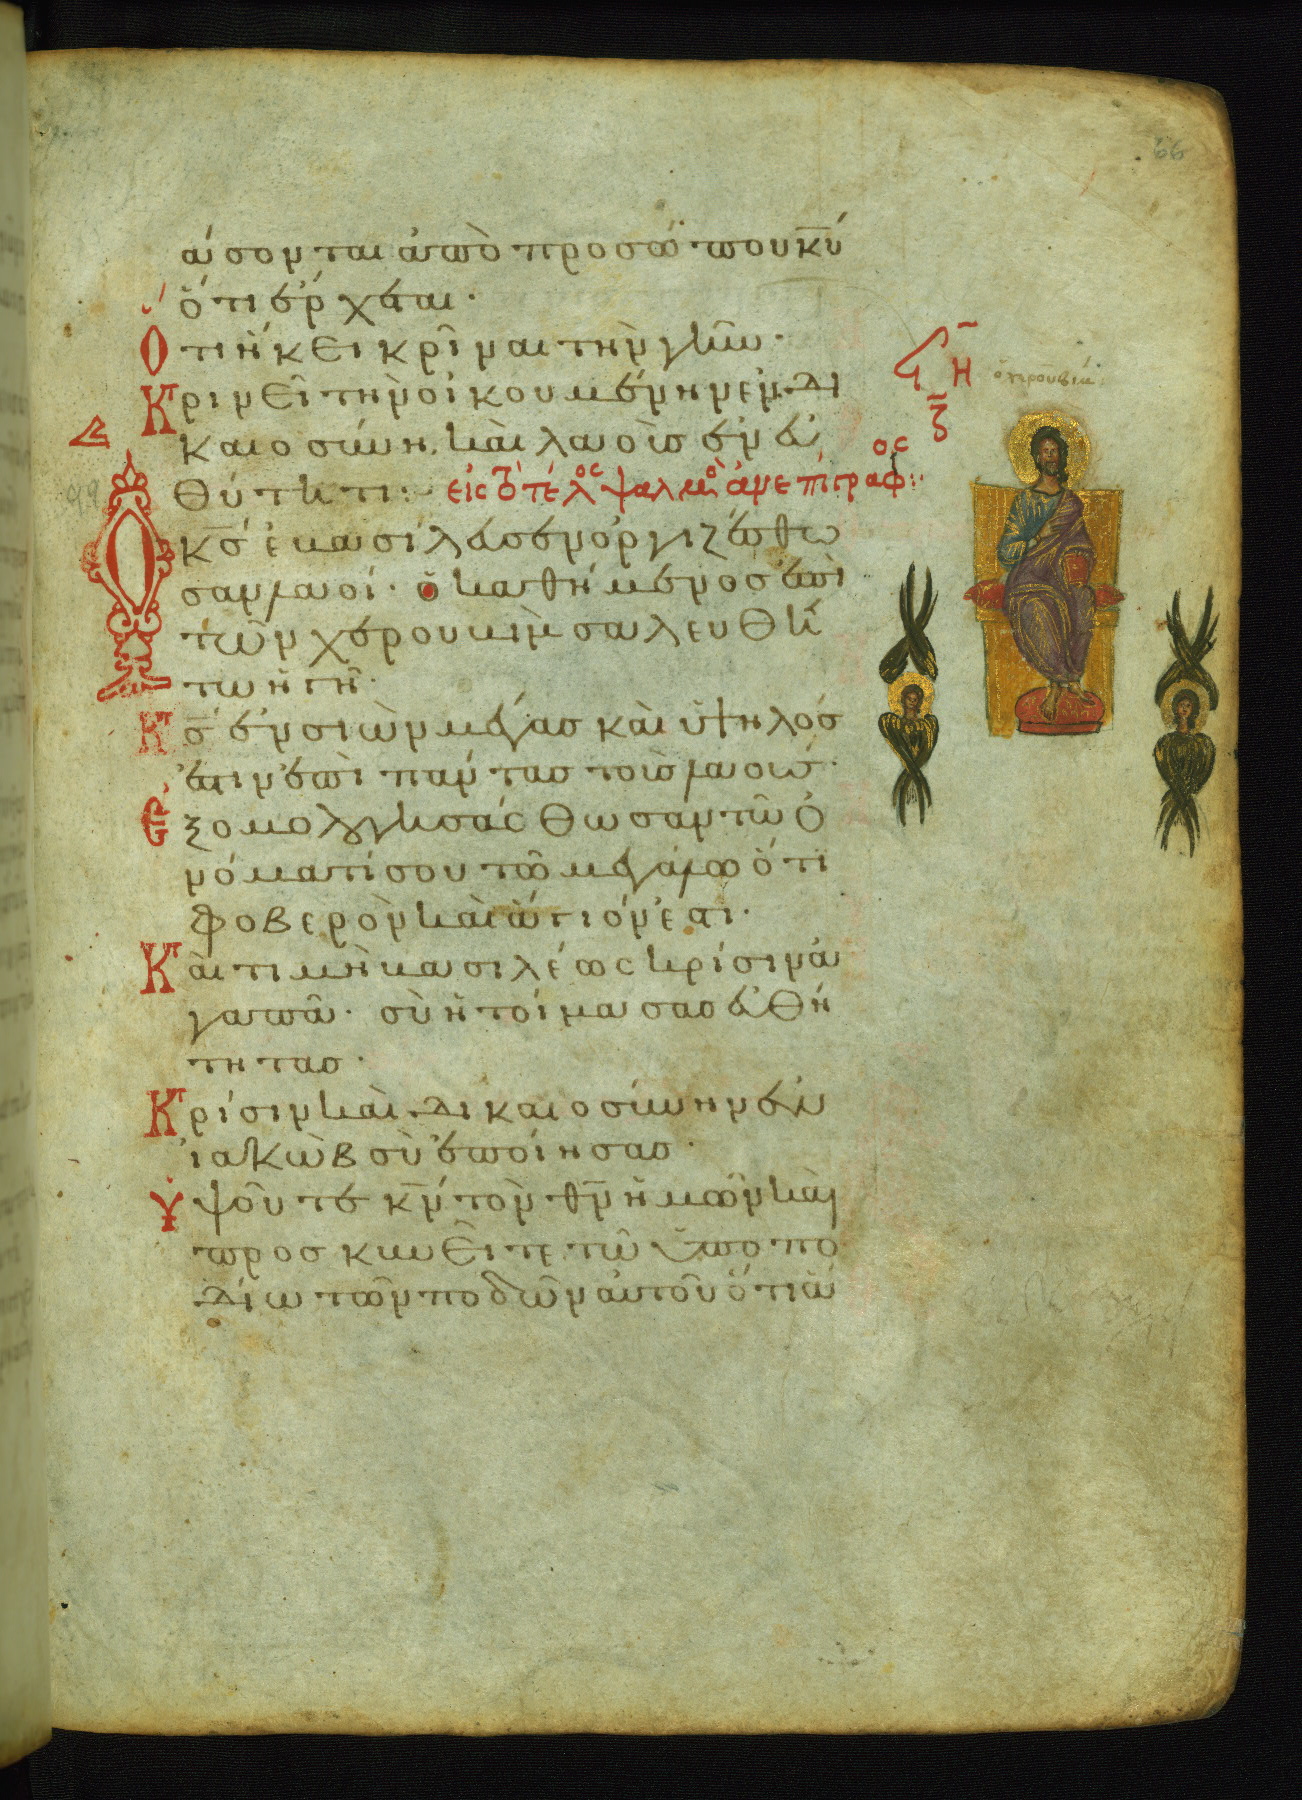 66
άσονται ἀπὸ προσώπου κ̅υ̅
ὅτι ἔρχεται·
Ὅτι ἥκει κρῖναι τὴν γῆν·
Κρινεῖ τὴν οἰκουμένην ἐν δι
καιοσύνη, καὶ λαοὺσ ἐν εὐ
θύτητι: εἰς τὸ τέλος ψαλμὸς ἀνεπίγραφος:
Ο κ̅σ̅ ἐβασίλευσεν ὀργιζέσθω
σαν λαοί· ὁ καθήμενοσ ἐπὶ
τῶν χερουβὶμ σαλευθή
τω ἡ γῆ·
Κ̅σ̅ ἐν σιὼν μέγασ καὶ ὑψηλόσ
ἐστιν ἐπὶ πάντασ τοὺσ λαούσ·
Ἐξομολογησάσθωσαν τῶ ὀ
νόματί σου τῶ μεγάλω ὅτι
φοβερὸν καὶ ἅγιόν ἐστι·
Καὶ τιμὴ βασιλέως κρίσιν ἀ
γαπᾶ· σὺ ἡτοίμασασ εὐθύ
τητασ·
Κρίσιν καὶ δικαιοσύνην ἐν
ἰακὼβ σὺ ἐποίησασ·
Ὑψοῦτε κ̅ν̅ τὸν θ̅ν̅ ἡμῶν καὶ
προσκυνεῖτε τῶ ὑποπο
δίω τῶν ποδῶν αὐτοῦ ὅτι ἅ